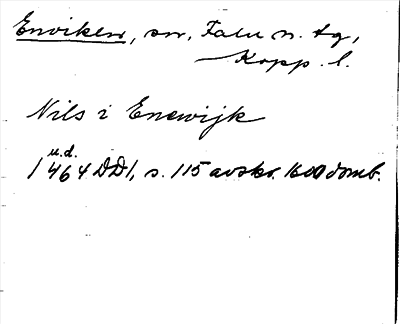 Enviken, sn, Falu n. tg,
Kopp. l.
Nils i Enewijk
u.d.
1464 DD1, s. 115 avskr. 1600 domb.